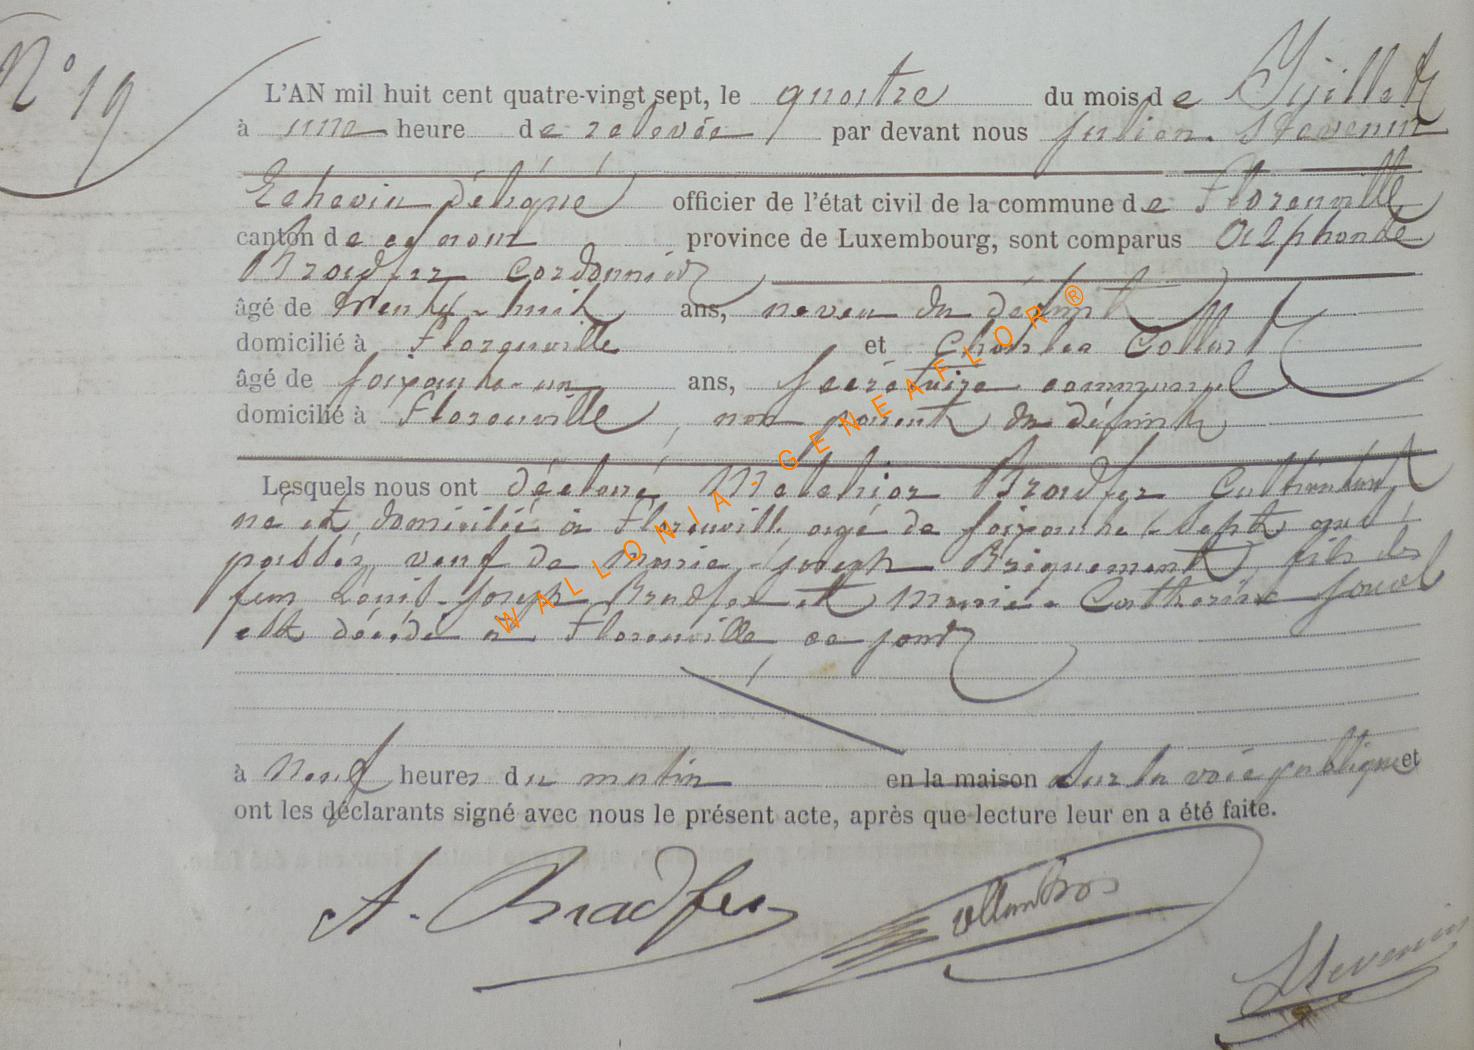 N° 19
L'AN mil huit cent quatre-vingt sept, le quatre du mois de Juillet
à une heure de relevée par devant nous Julien Stevenin
Echevin délégué officier de l'état civil de la commune de Florenville
canton de ce nom province de Luxembourg, sont comparus Alphonse
Bradfer cordonnier
âgé de trente-huit ans, neveu du défunt
domicilié à Florenville et Charles Collart
âgé de soixante-un ans, secrétaire communal
domicilié à Florenville, non parent du défunt
Lesquels nous ont déclaré Melchior Bradfer Cultivateur
né et domicilié à Florenville agé de soixante-sept ans
passés, veuf de Marie-Joseph Briquemont, fils des
feus Louis-Joseph Bradfer et Marie-Catherine
est décédé à Florenville ce jour
à neuf heures du matin en la maison sur la voie publique et
ont les déclarants signé avec nous le présent acte, après que lecture leur en a été faite.
A. Bradfer
Stevenin
WALLONIA-GENEAFLOR®